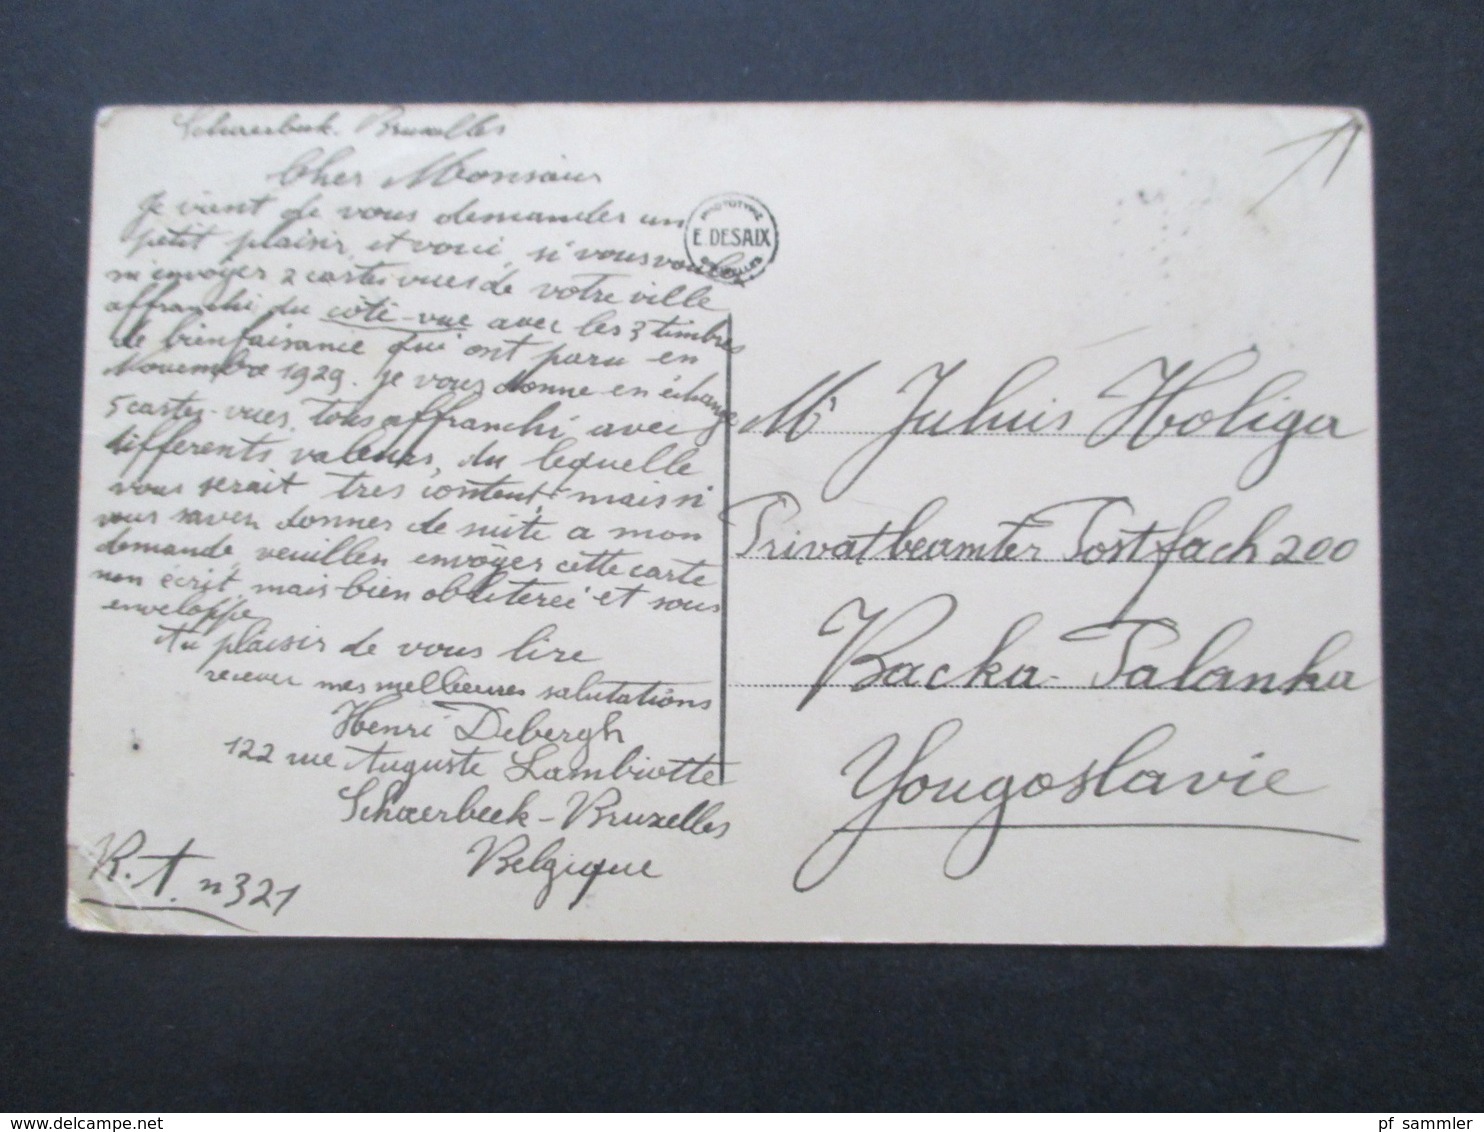 Schaerbeek. Bruxelles
Cher Monsieur
Je vient de vous demander un
petit plaisir, et voici, si vous voulez
m'envoyer 2 cartes vues de votre ville
affranchi du côté-vue avec les 3 timbres
de bienfaisance qui ont paru en
Novembre 1929. je vous donne en échange
5 cartes-vues, tous affranchi avec
differents valeurs, du lequelle
vous serait tres content, mais si
vous saven donner de suite a mon
demande, veuillen envoyer cette carte
non écrit, mais bien obliterei et sous
enveloppe
Au plaisir de vous lire
recever mes mellieures salutations
Henri Debergh
122 rue Auguste Lambiotte
Schaerbeek-Bruxelles
Belgique
R.A. n 321
PHOTOTYPIE
E. DESAIX
BRUXELLES
Mr Juluis Holiga
Privatbeamter Postfach 200
Backa-Palanka
Yougoslavie
pf_sammler
www.delcampe.net